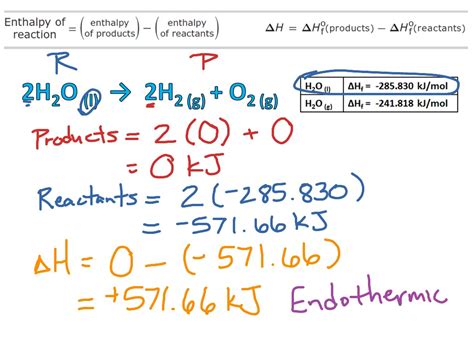 Enthalpy of reaction = (enthalpy of products) − (enthalpy of reactants)
ΔH = ΔH°f(products) − ΔH°f(reactants)
R P
2H₂O (l) → 2H₂ (g) + O₂ (g)
H₂O (l) ΔHf = -285.830 kJ/mol
H₂O (g) ΔHf = -241.818 kJ/mol
Products = 2 (0) + 0
= 0 KJ
Reactants = 2(-285.830)
= -571.66 KJ
ΔH = 0 - (-571.66)
= +571.66 KJ Endothermic